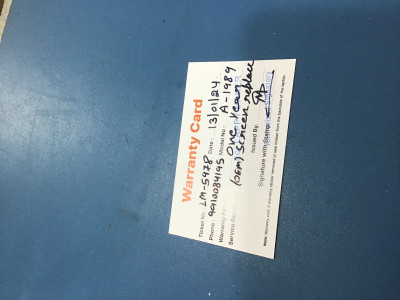 Warranty Card
Ticket No. LM-5978 Date: 13/01/24
Phone: 9910084195 Model No.: A-1989
Warranty One year
Service (OEM) Screen replace
Issued By:
Signature with Stamp
Note: Warranty void, if warranty sticker removed or